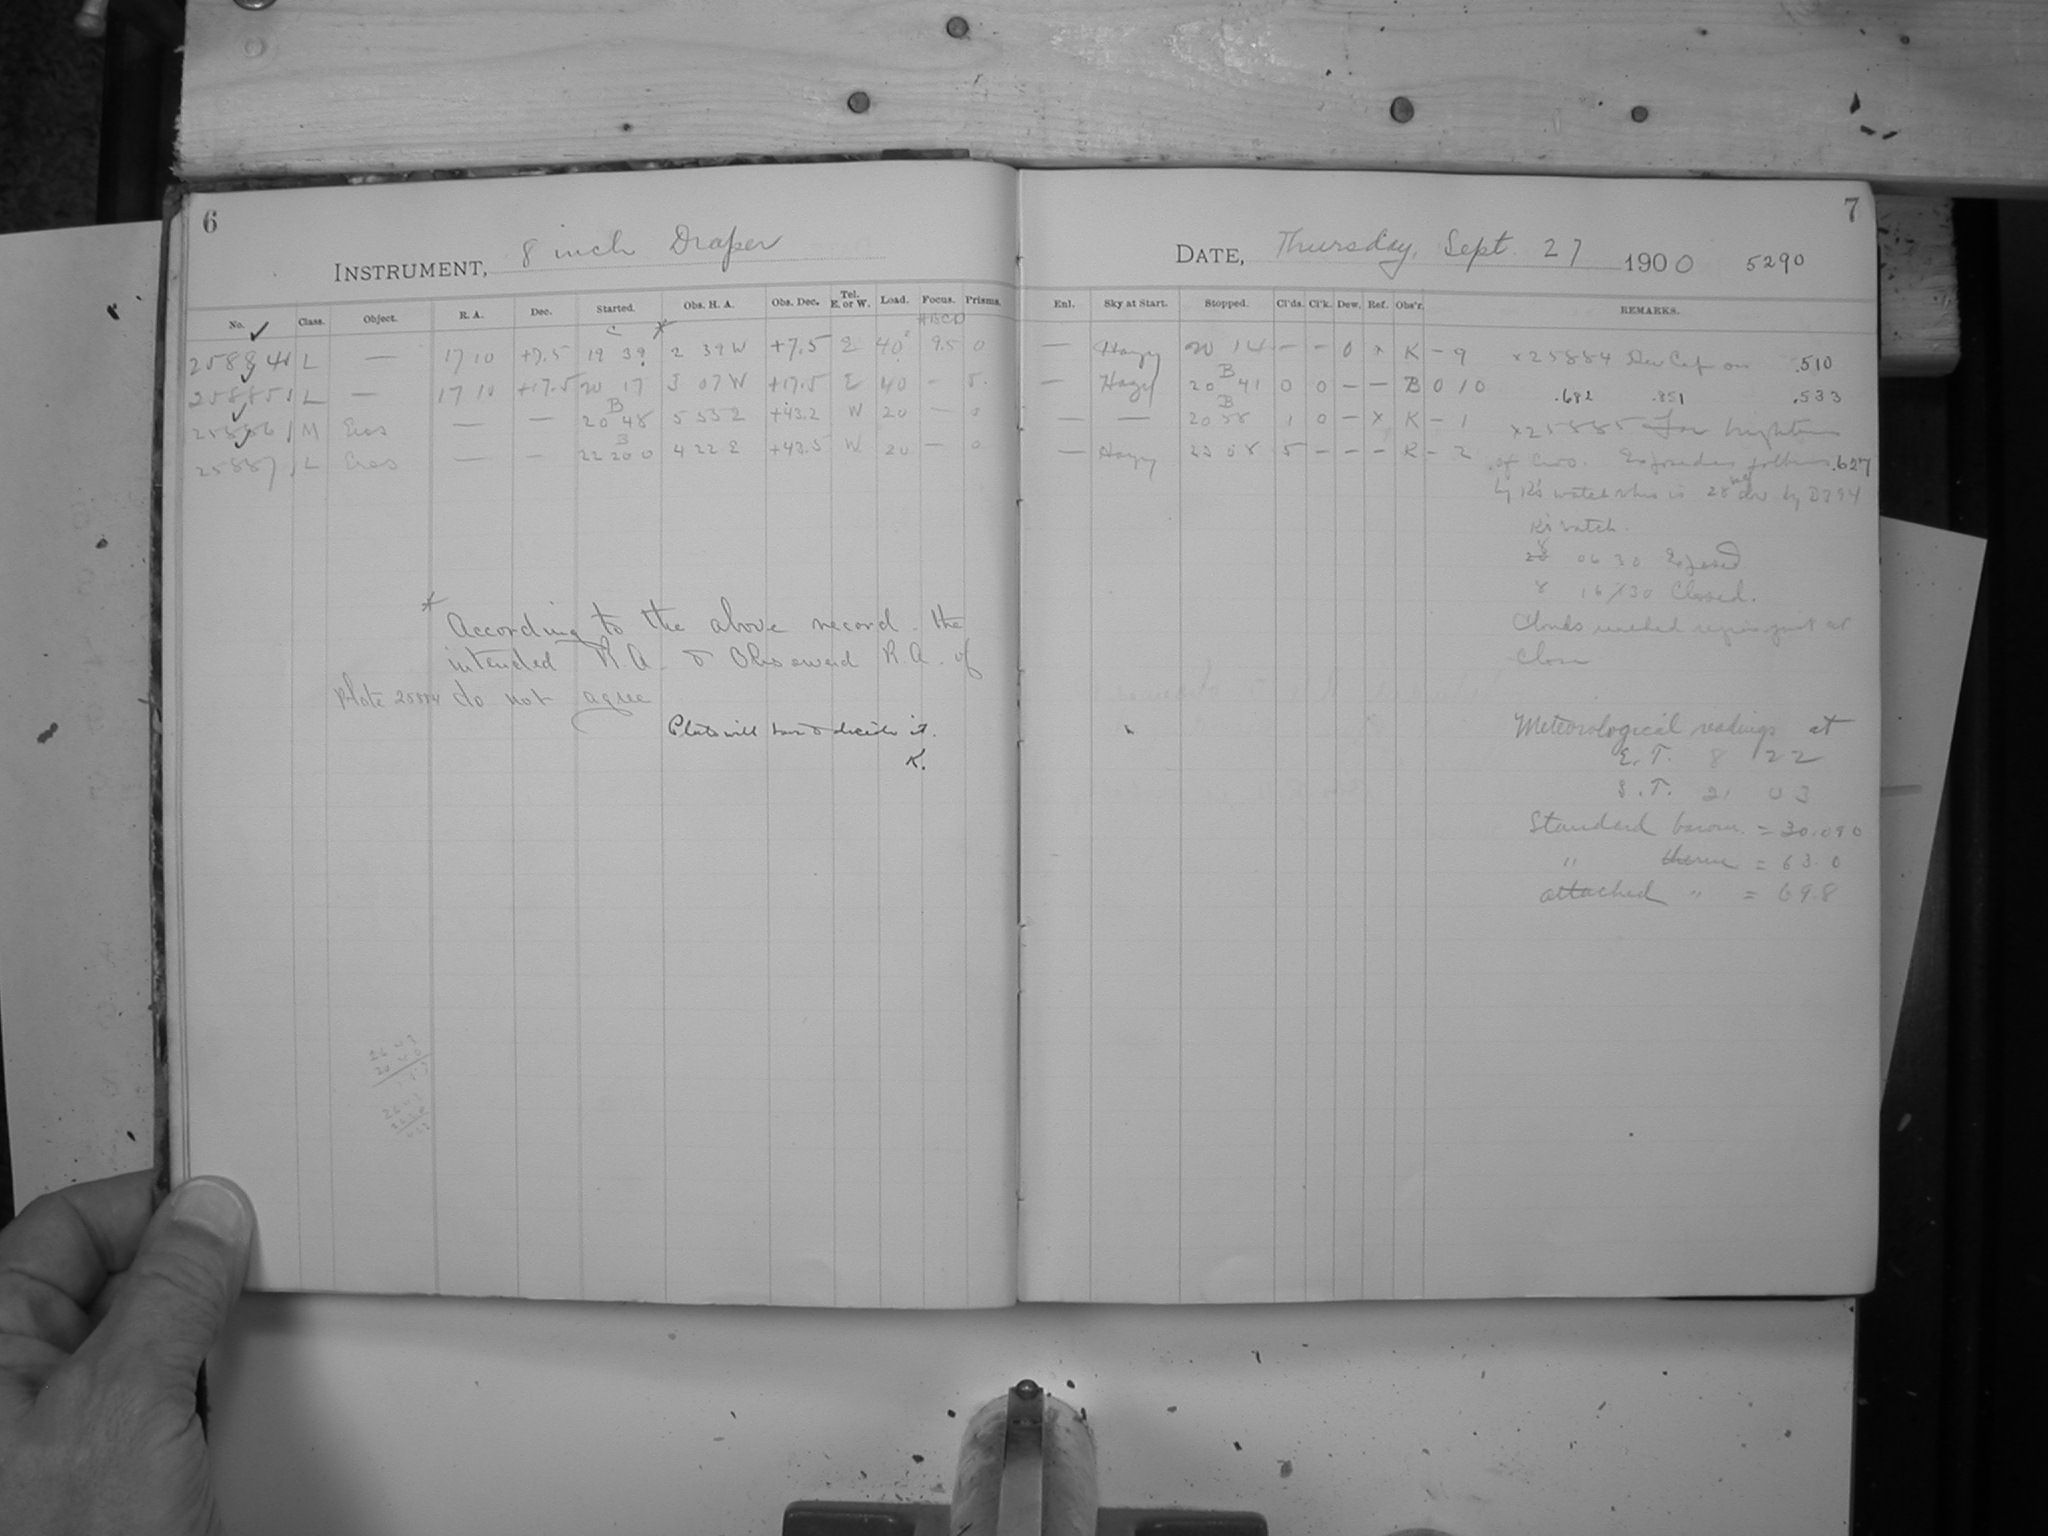 6
INSTRUMENT, 8 inch Draper
No. Class. Object. R. A. Dec. Started. Obs. H. A. Obs. Dec. Tel. E. or W. Load. Focus. Prisms.
ABCD
25884 L — 17 10 +7.5 19 39 2 39 W +7.5 E 40 9.5 0
25885 L — 17 10 +17.5 20 17 3 07 W +17.5 E 40 —
25886 M Eros — — 20 48 5 53 E +43.2 W 20 — 0
25887 L Eros — — 22 20 0 4 22 E +43.5 W 20 — 0
* According to the above record the
intended R.A. & Observed R.A. of
Plate 25884 do not agree
Plate will have to decide it.
K.
7
DATE, Thursday, Sept. 27 1900 5290
Enl. Sky at Start. Stopped. Cl'ds. Cl'k. Dew. Ref. Obs'r. REMARKS.
— Hazy 20 14 — — 0 x K — 9 x 25884 Dew Cap on .510
— Hazy 20 41 0 0 — — B 0 10 .682 .851 .533
— — 20 58 1 0 — x K — 1 x 25885 For brightness
— Hazy 23 08 5 — — — K — 2 of .627
by K's watch
K's watch.
8 06 30 Exposed
8 16 30 Closed.
Clouds reached region just at
close
Meteorological readings at
E. T. 8 22
S. T. 21 03
Standard barom. = 30.090
" therm = 63.0
attached " = 69.8